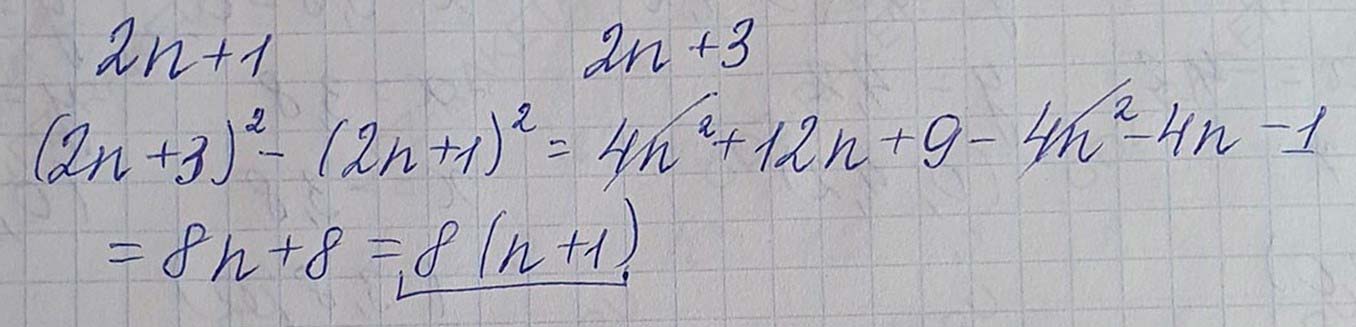 2n+1 2n+3
(2n+3)² - (2n+1)² = 4n² + 12n + 9 - 4n² - 4n - 1
= 8n + 8 = 8(n+1)